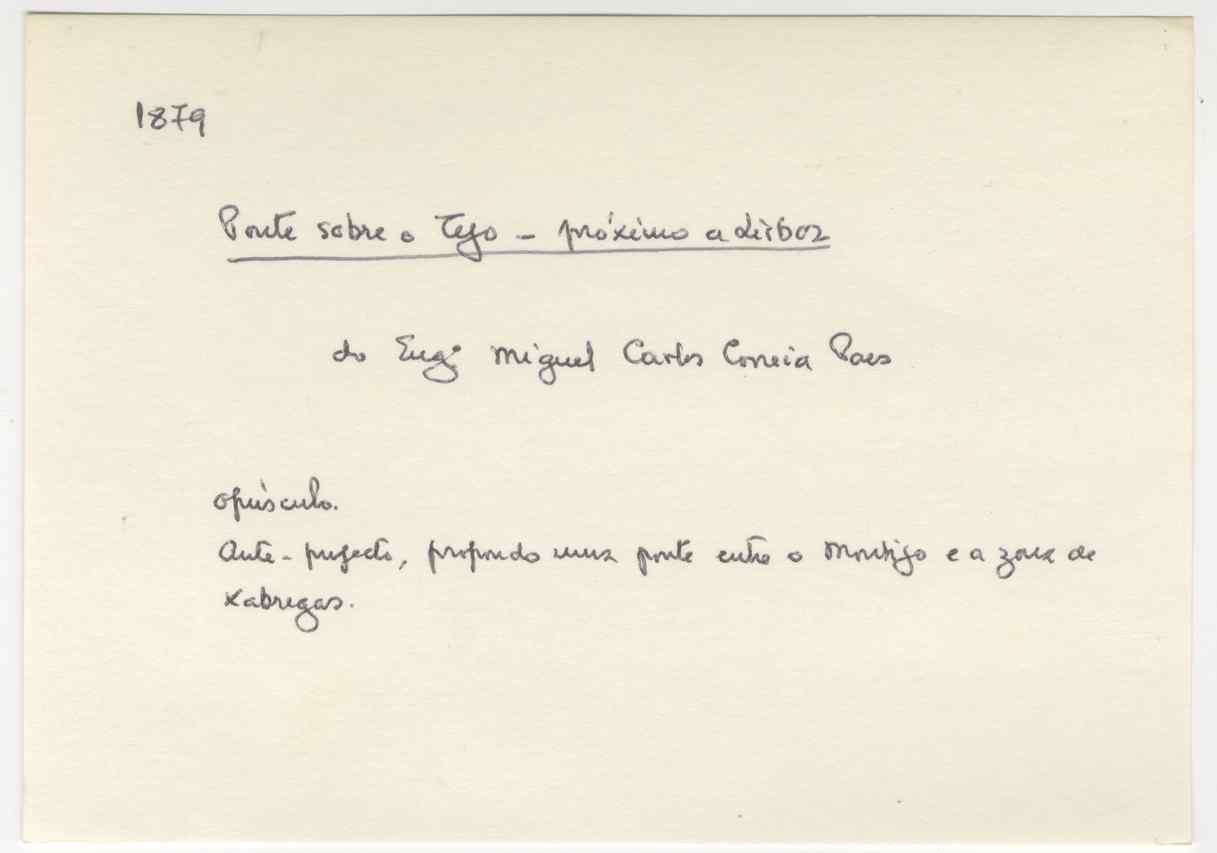 1879
Ponte sobre o Tejo - próximo a Lisboa
do Engº Miguel Carlos Correia Paes
opúsculo.
Ante-projecto, propondo uma ponte entre o Montijo e a zona de
Xabregas.